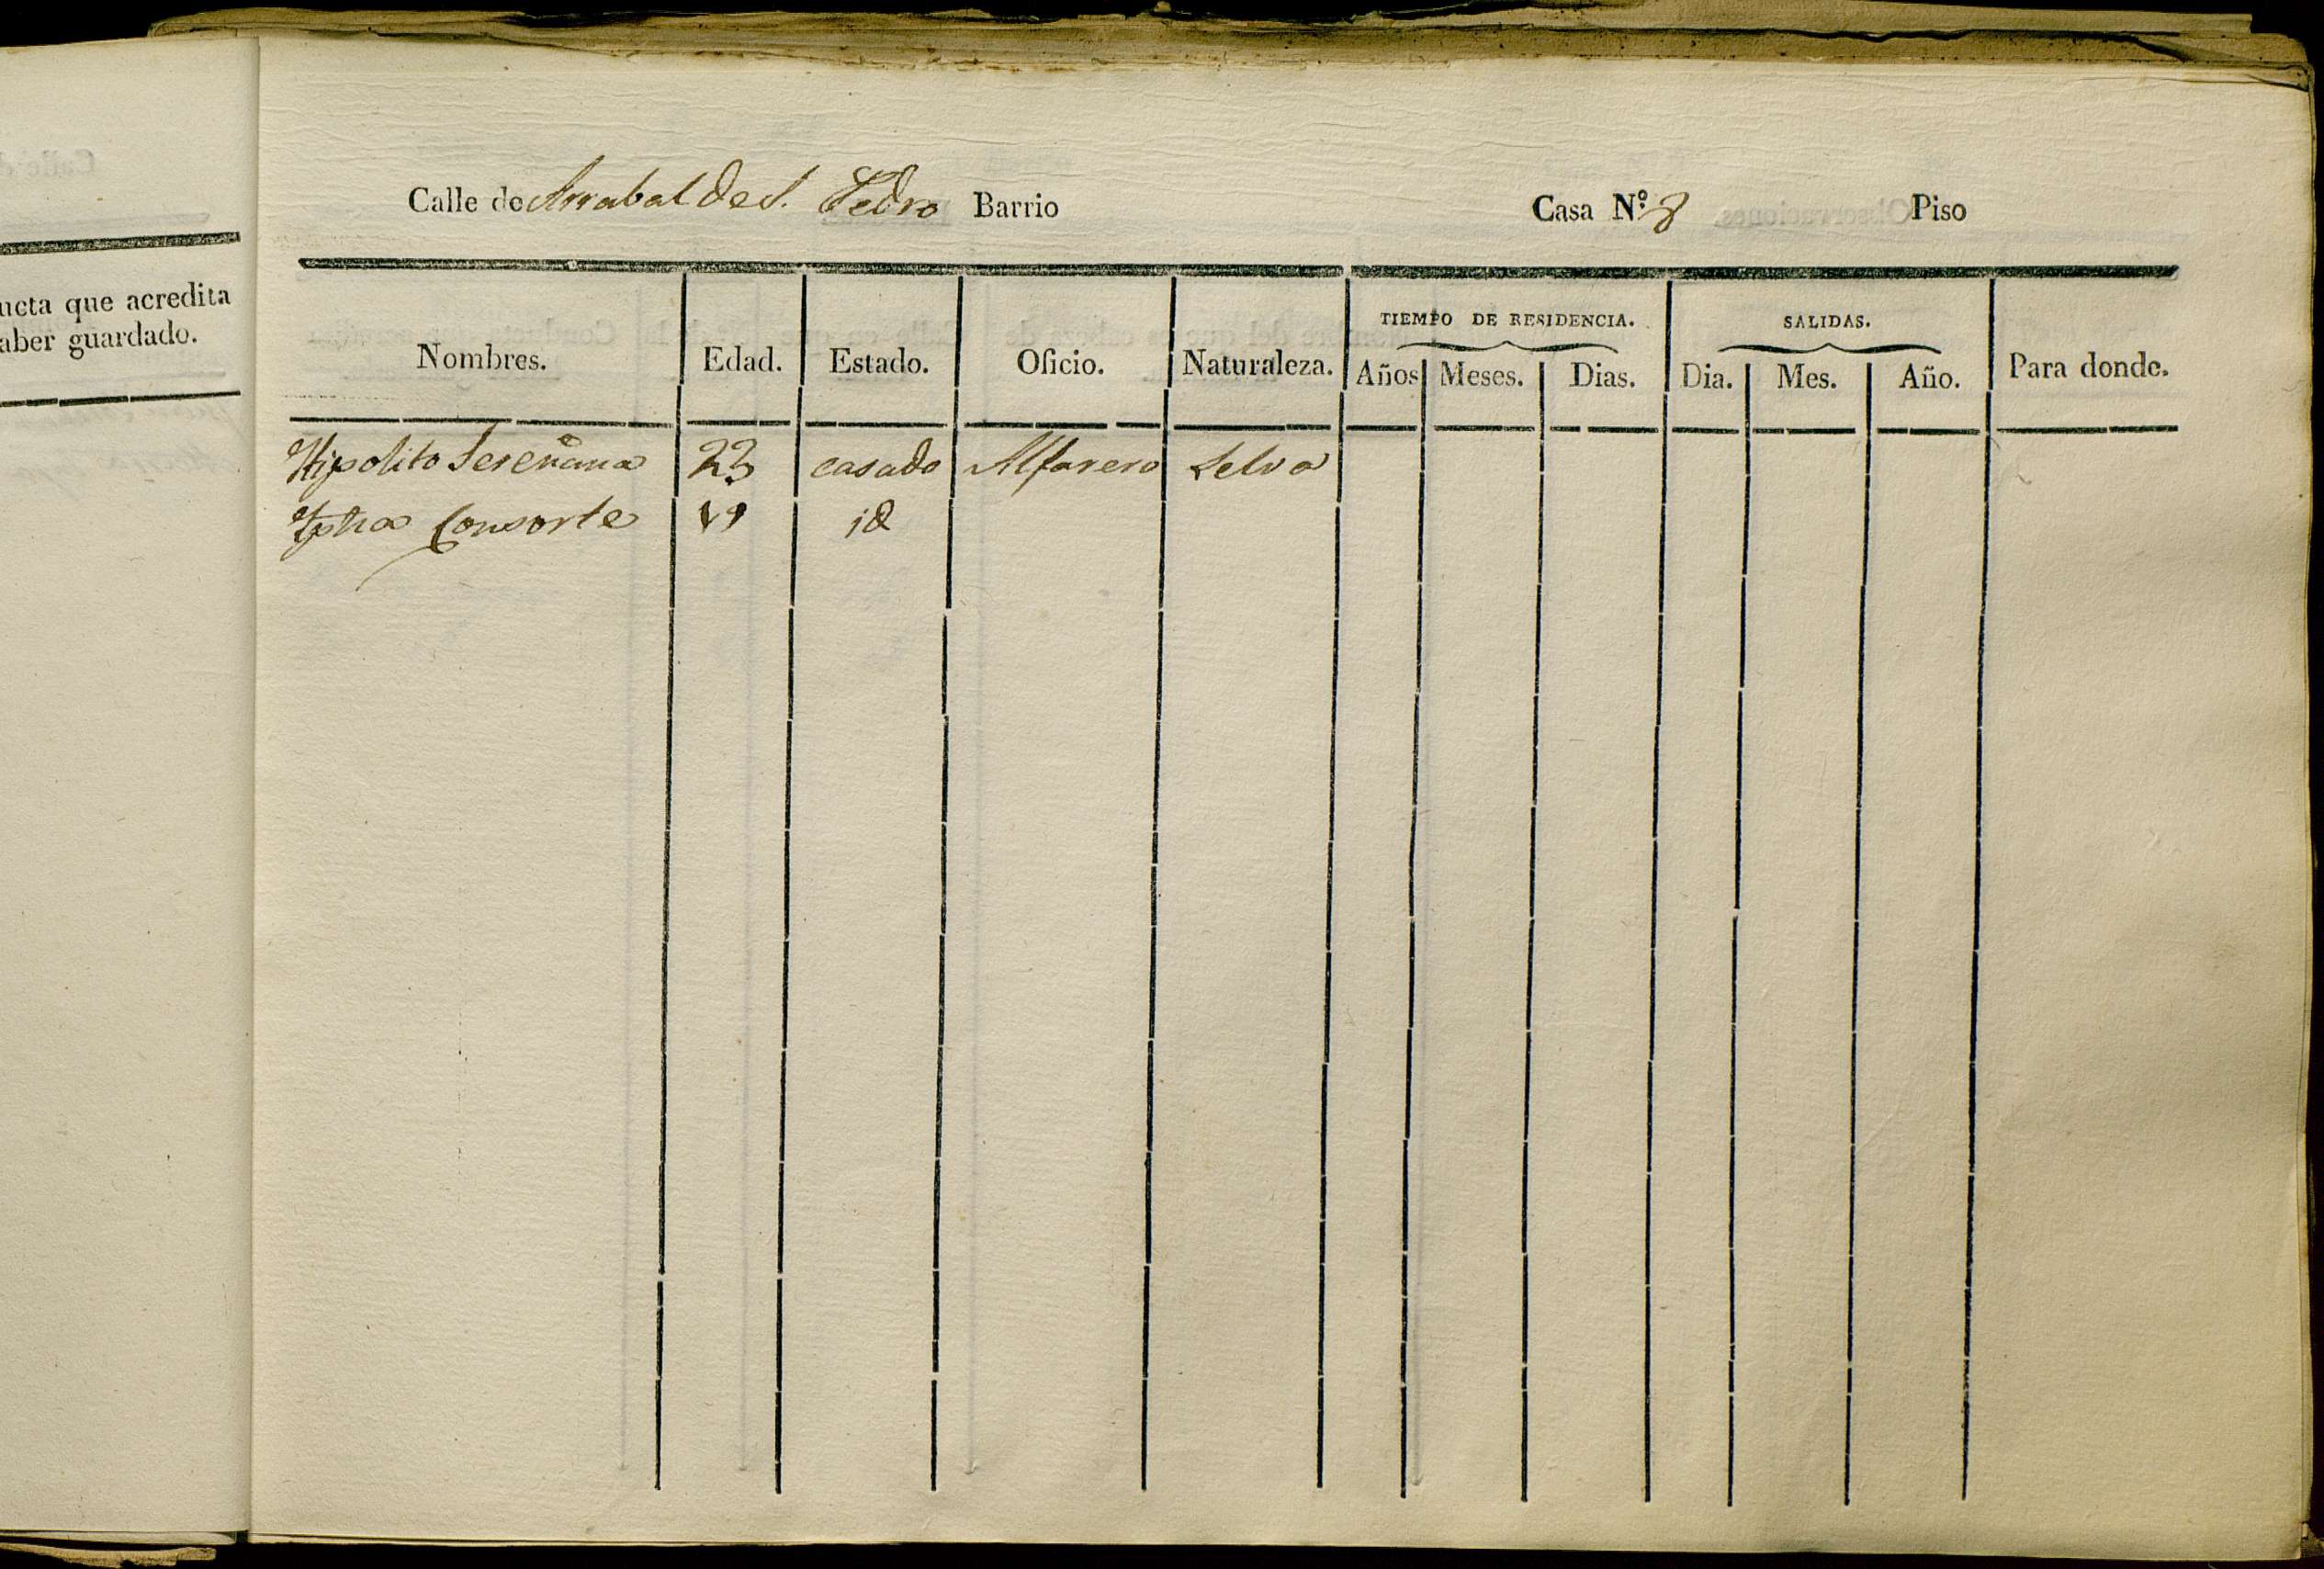 ucta que acredita
aber guardado.
Calle de Arrabal de S. Pedro Barrio Casa Nº. 8 Piso
Nombres. Edad. Estado. Oficio. Naturaleza. TIEMPO DE RESIDENCIA. Años Meses. Dias. SALIDAS. Dia. Mes. Año. Para donde.
Hipolito Sereñana 23 casado Alfarero Selva
Consorte 19 id